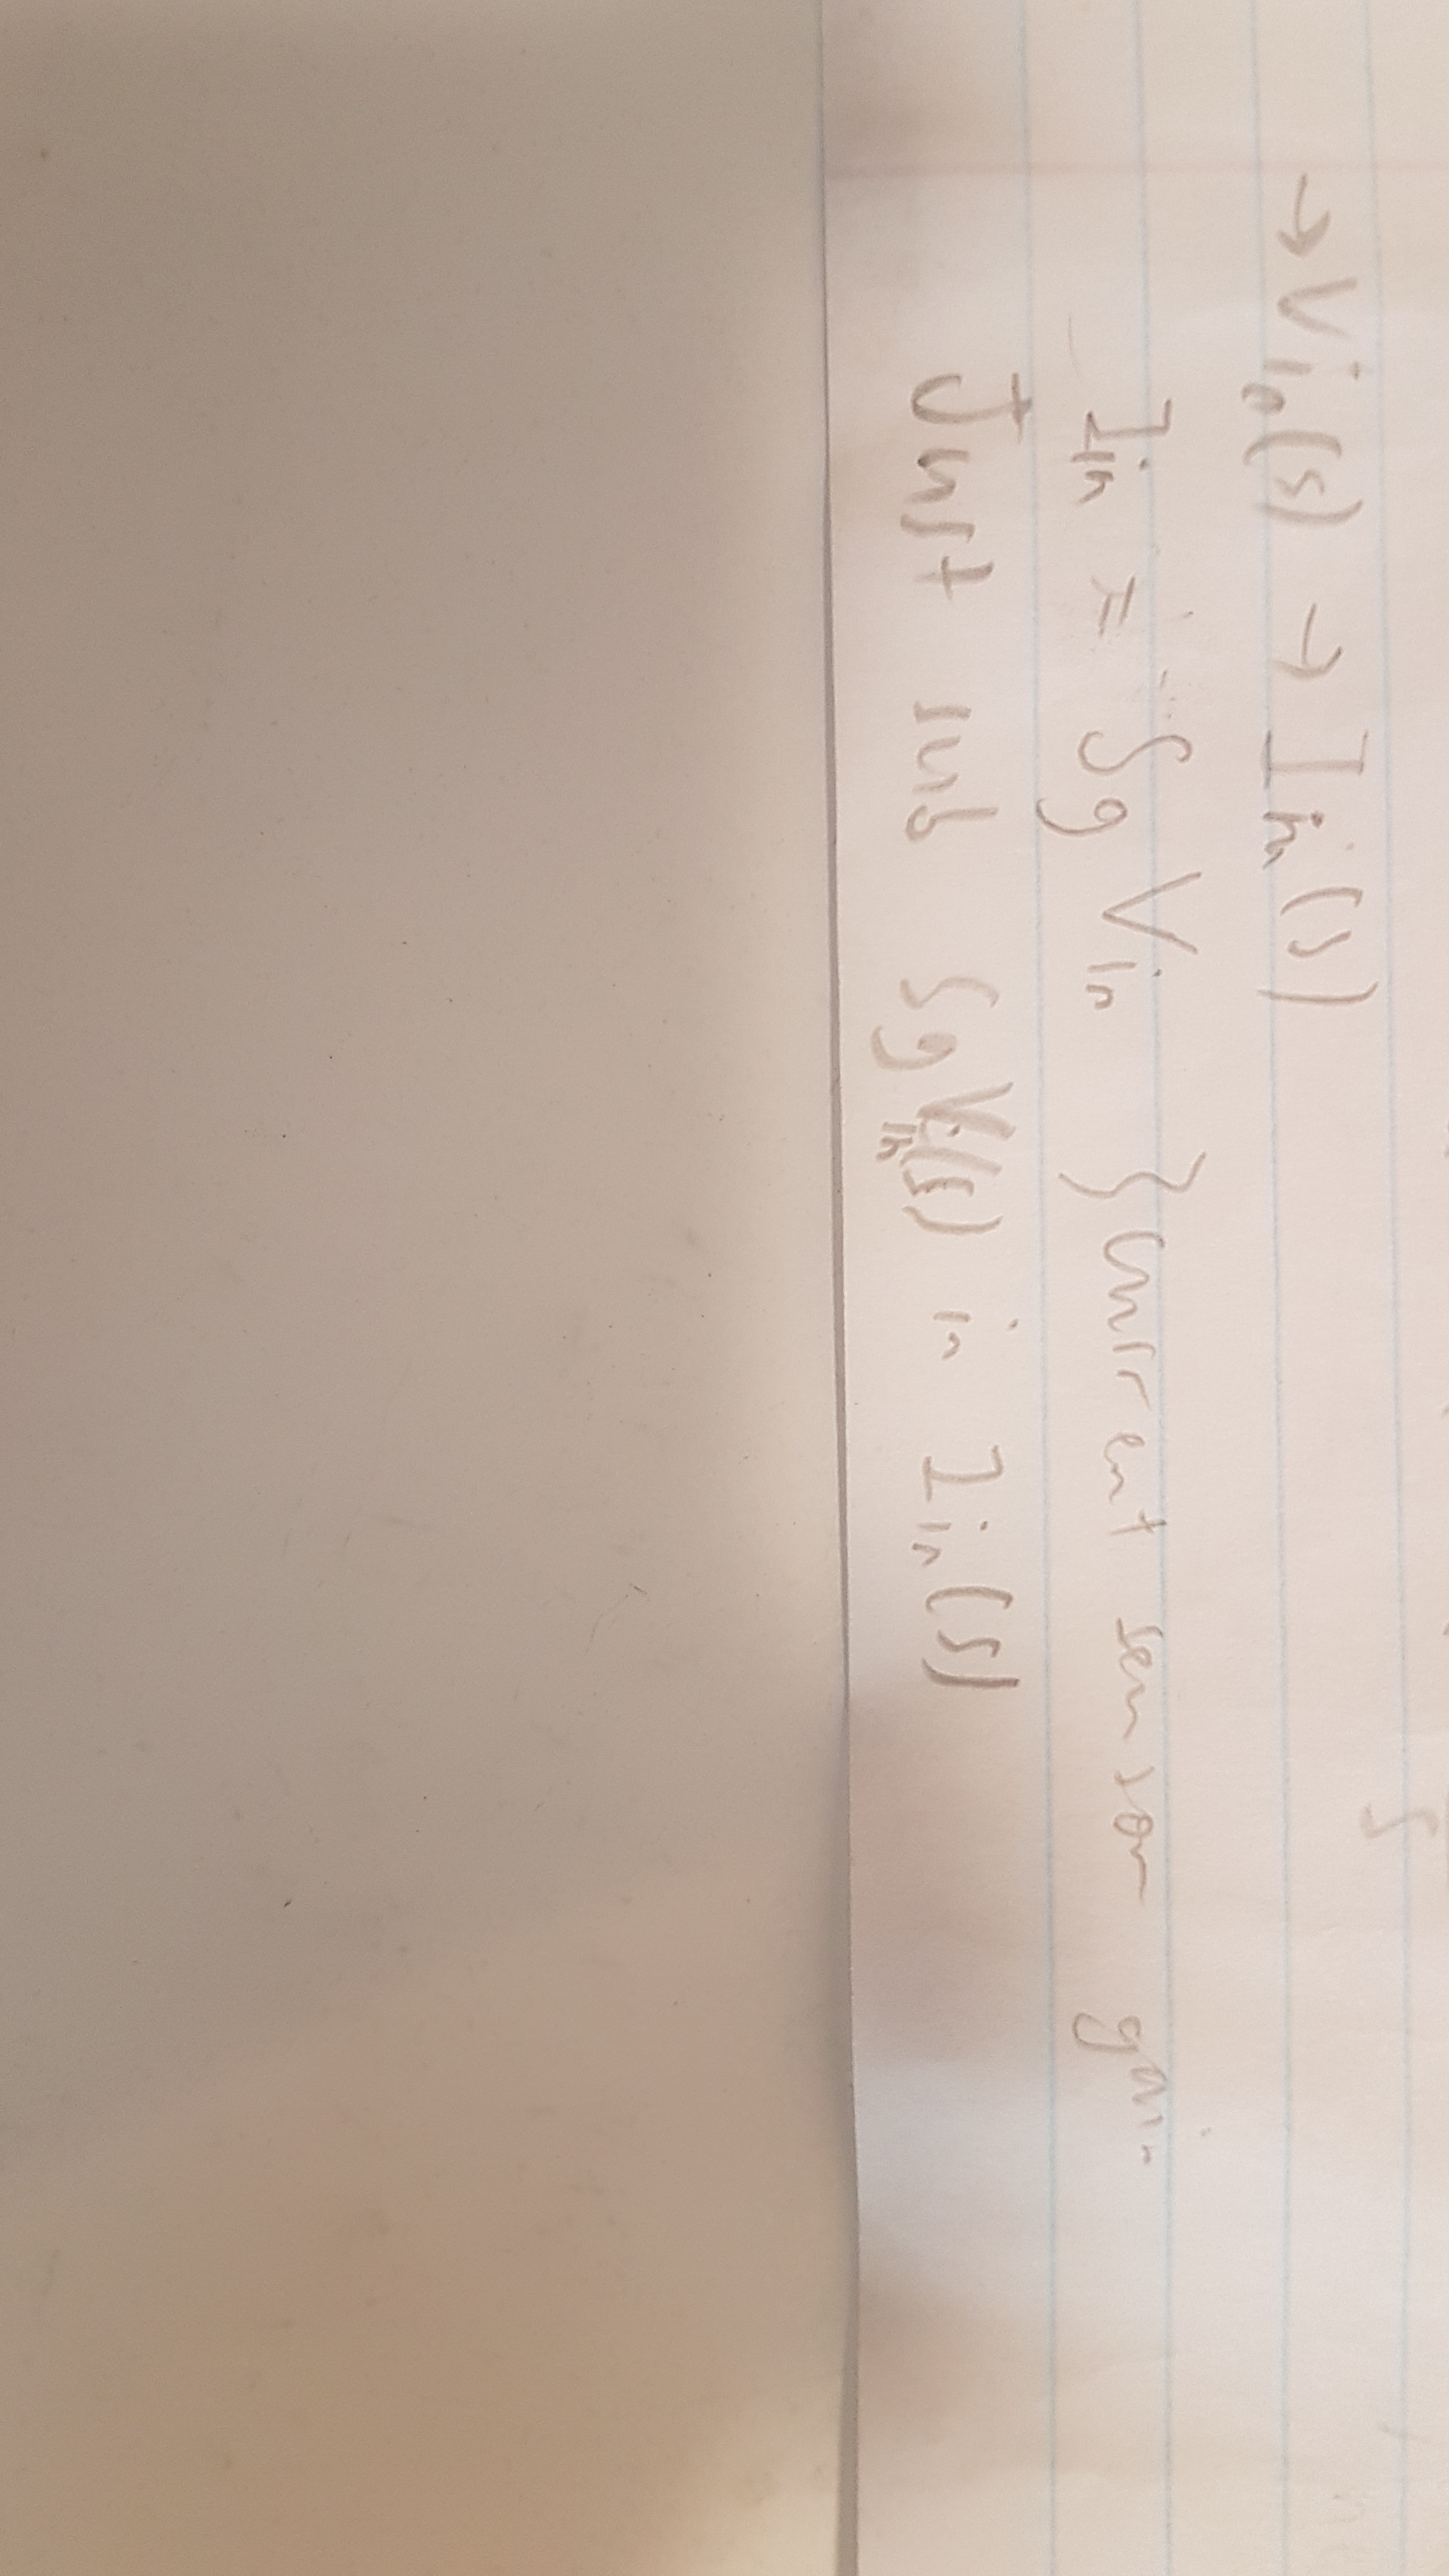 → Vin(s) → Iin(s)
Iin = Sg Vin } current sensor gain
Just sub SgVin(s) in Iin(s)